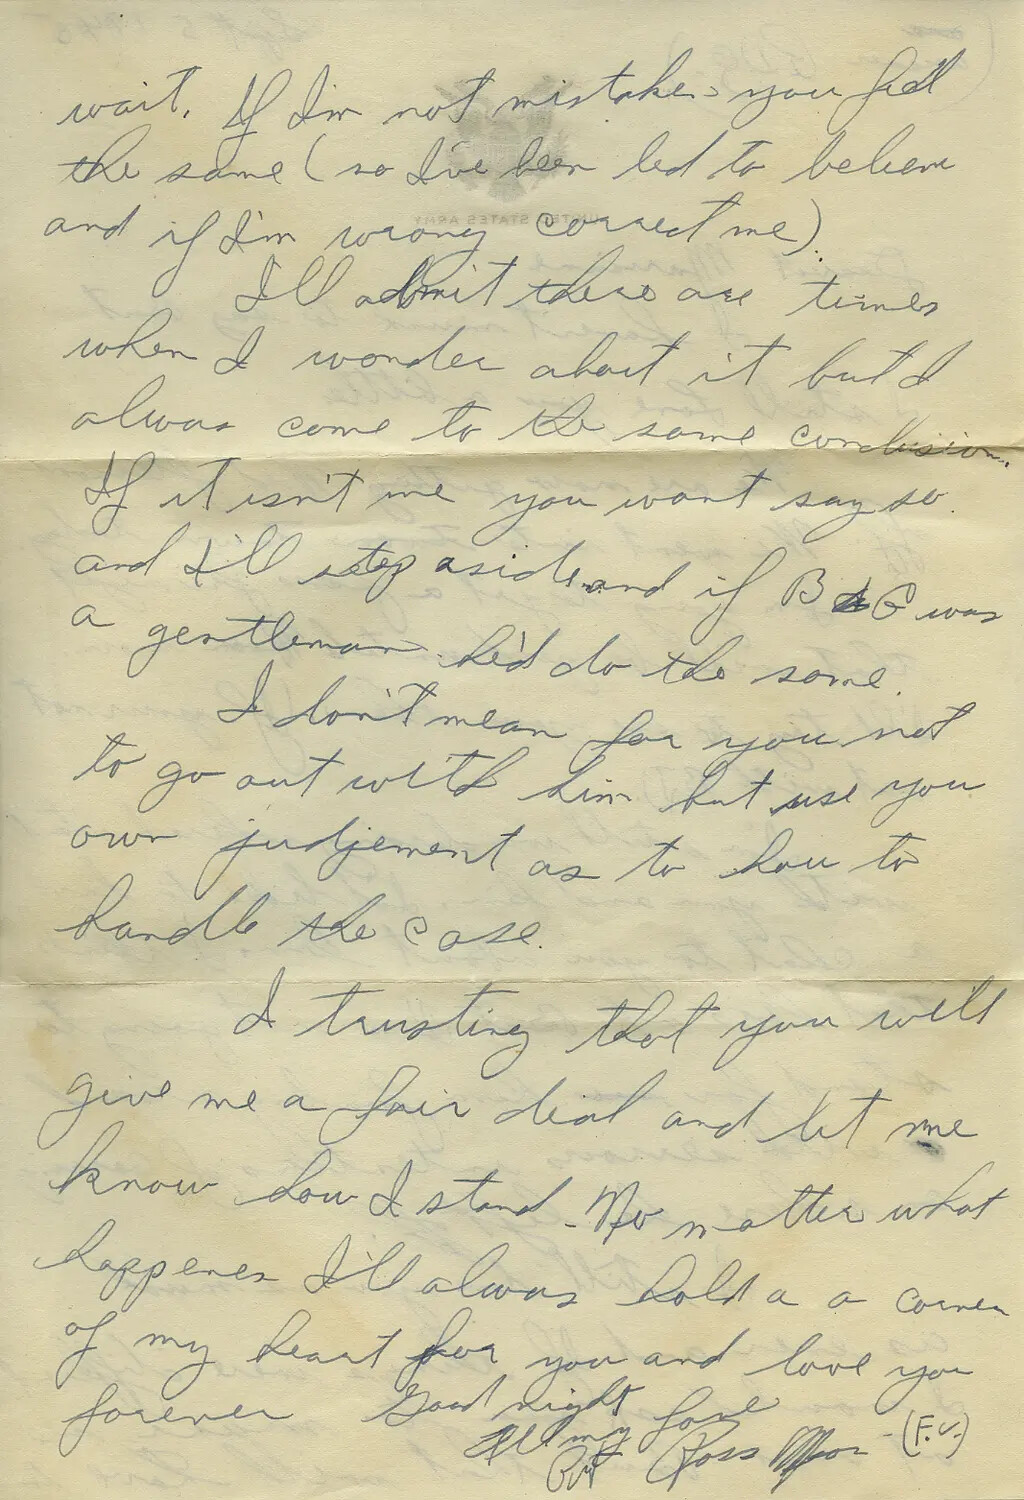 wait. If I'm not mistaken you feel
the same (so I've been led to believe
and if I'm wrong correct me).
I'll admit there are times
when I wonder about it but I
always come to the same conclusion.
If it isn't me you want say so
and I'll step aside and if B G was
a gentleman he'd do the same.
I don't mean for you not
to go out with him but use you
own judjement as to how to
handle the case.
I trusting that you will
give me a fair deal and let me
know how I stand - No matter what
happenes I'll always hold a a corner
of my heart for you and love you
forever Good night
All my love
Pvt Ross (F.V.)
UNITED STATES ARMY
Sept 5 1945